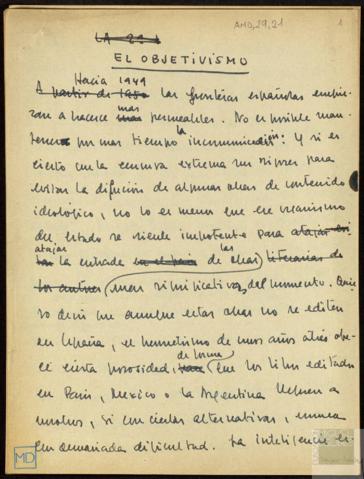 AMD, 29, 21
1
EL OBJETIVISMO
Hacia 1949
A partir de 1950 las fronteras españolas empie-
zan a hacerse mas permeables. No es posible man-
tener por mas tiempo la incomunicación: Y si es
cierto que la censura extrema su rigor para
evitar la difusión de algunas obras de contenido
ideológico, no lo es menos que ese organismo
del estado se siente impotente para
atajar la entrada de las obras literarias de
los autores mas significativas del momento. Quie-
ro decir que aunque estas obras no se editen
en España, el hermetismo de unos años atrás ofre-
ce cierta porosidad, de forma que los libros editados
en Paris, Mexico o la Argentina llegan a
nosotros, si con ciertas alternativas, nunca
con demasiada dificultad. La inteligencia es-
MD